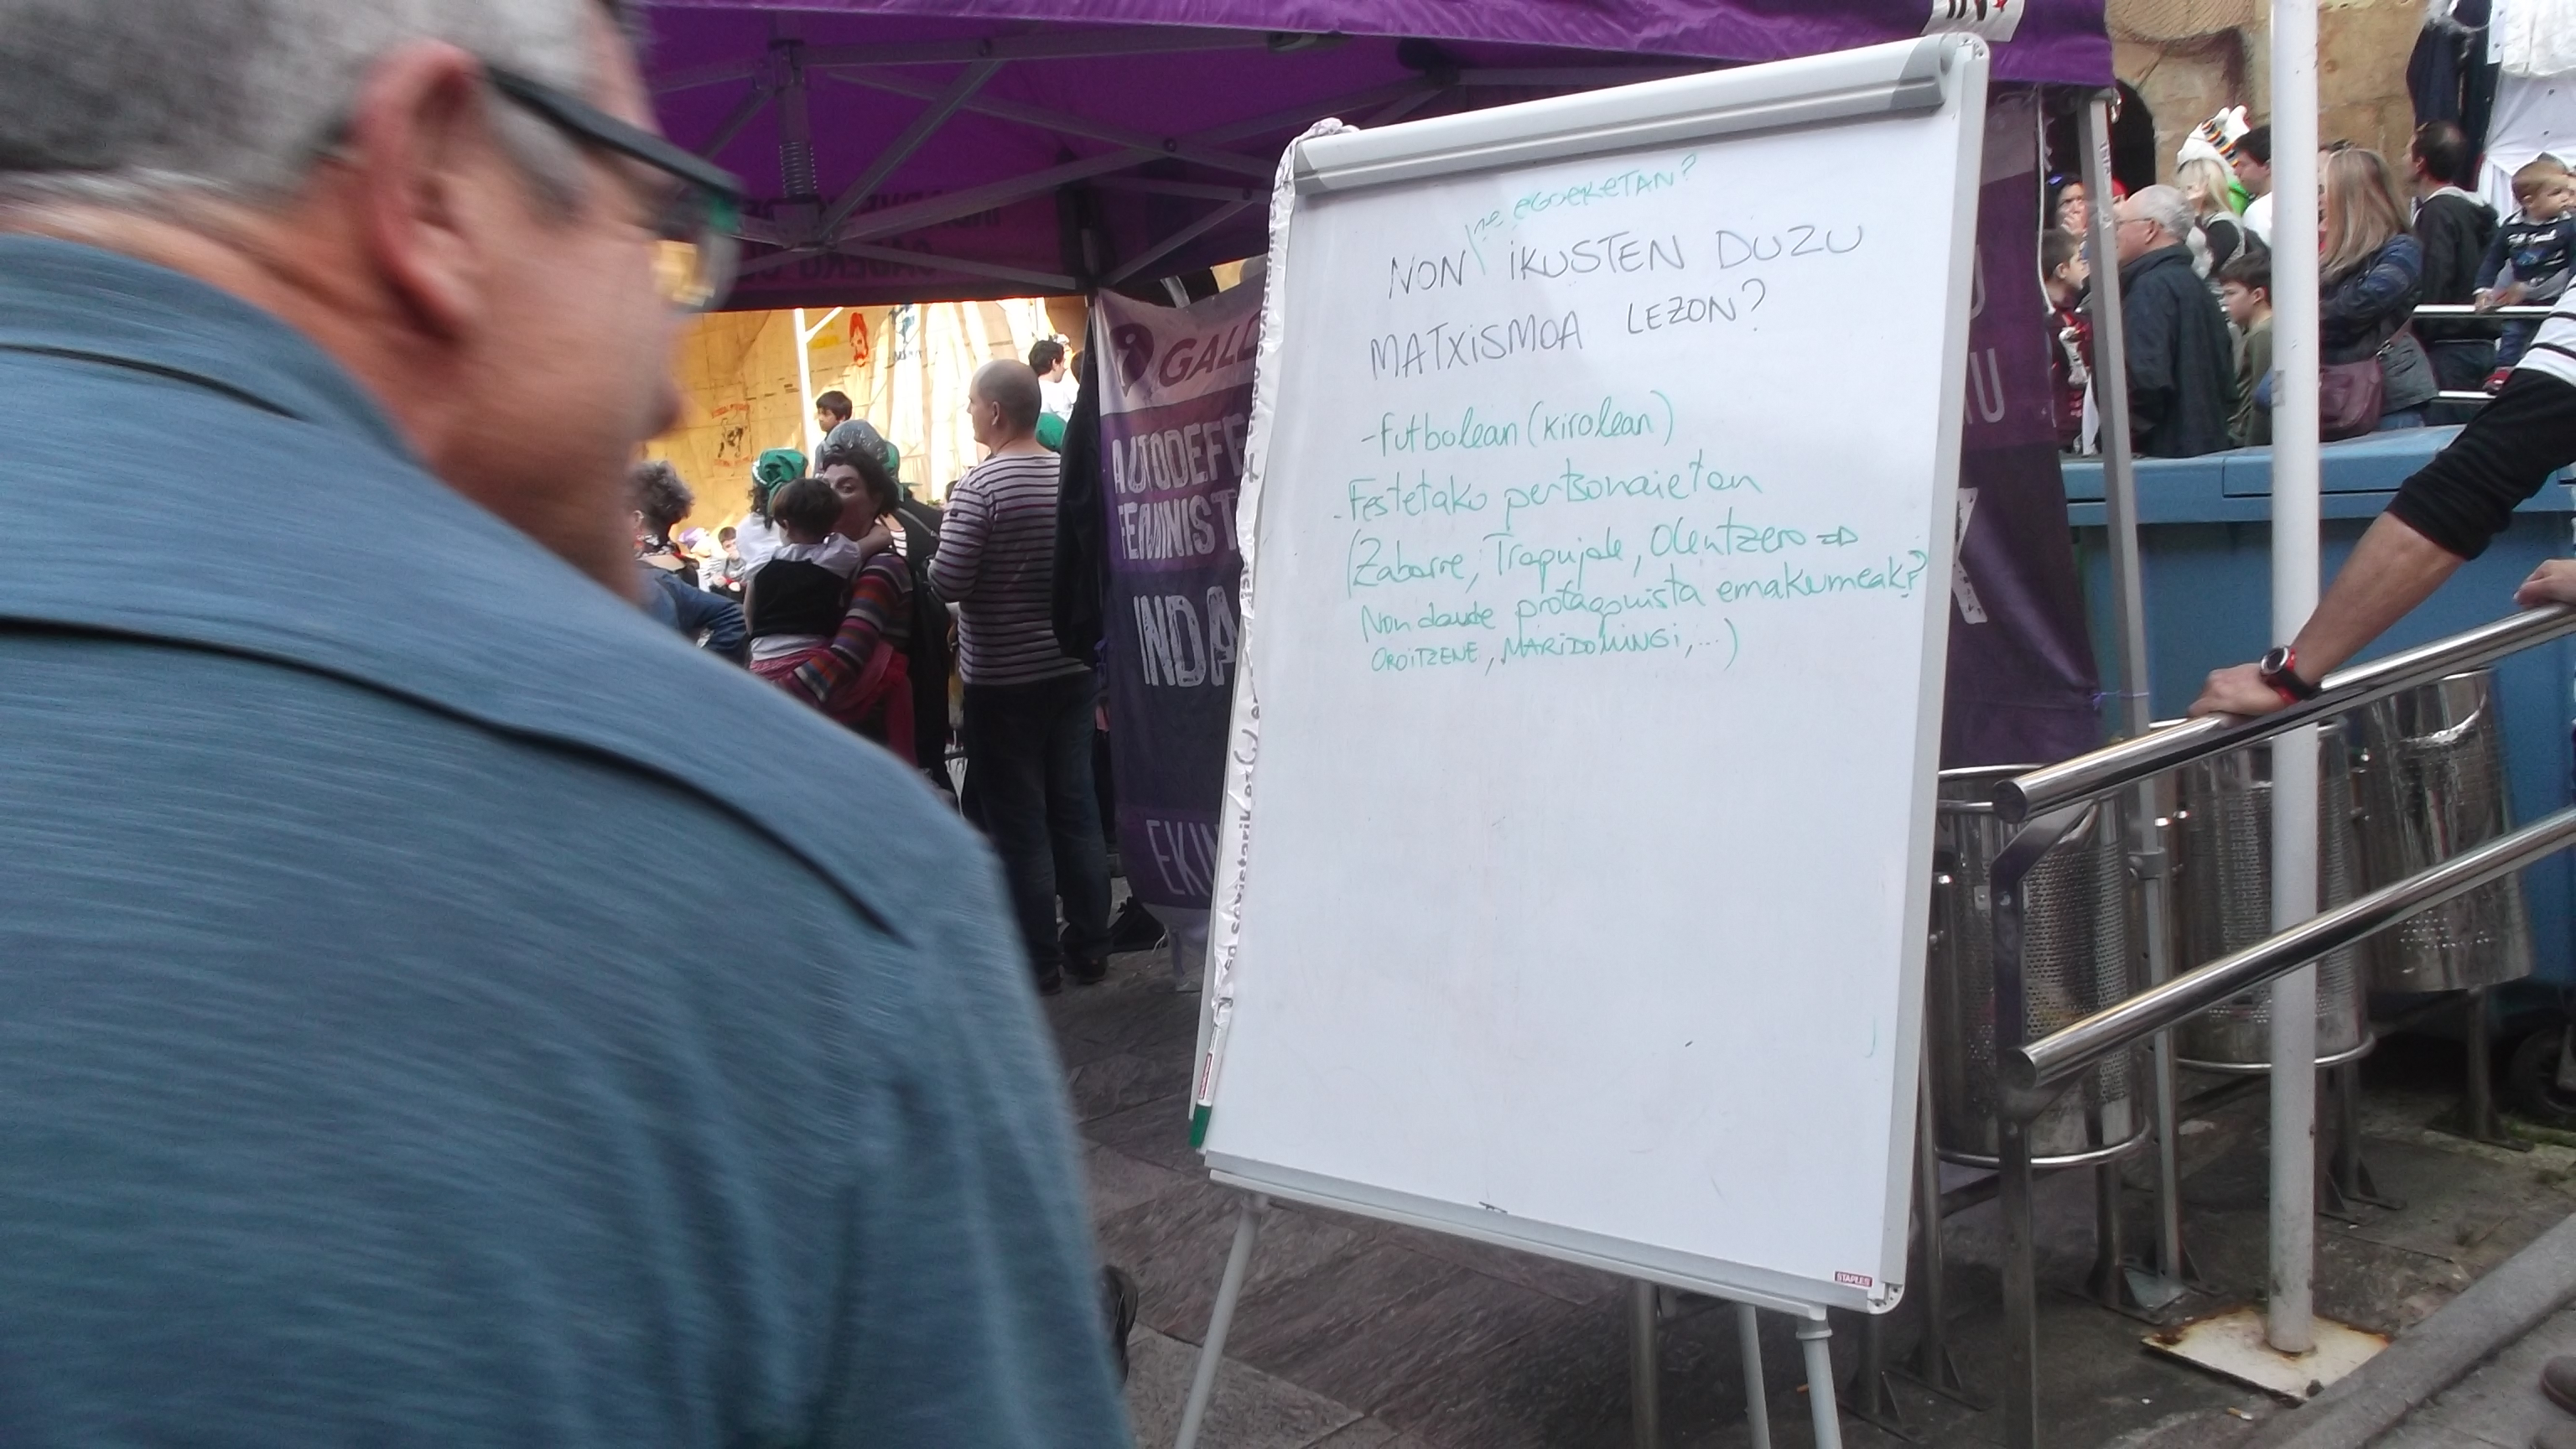 ne egoeketan?
NON iKUSTEN DUZU
MATXiSMOA LEZON?
-futbolean (kirolean)
- Festetako pertsonaietan
(Zabarre, Trapujale, Olentzero =>
Non daude protagonista emakumeak?
OROITZENE, MARiDOMiNGi, ...)
GALD
AUTODEFE
FEMINIST
INDA
EKIN
STAPLES